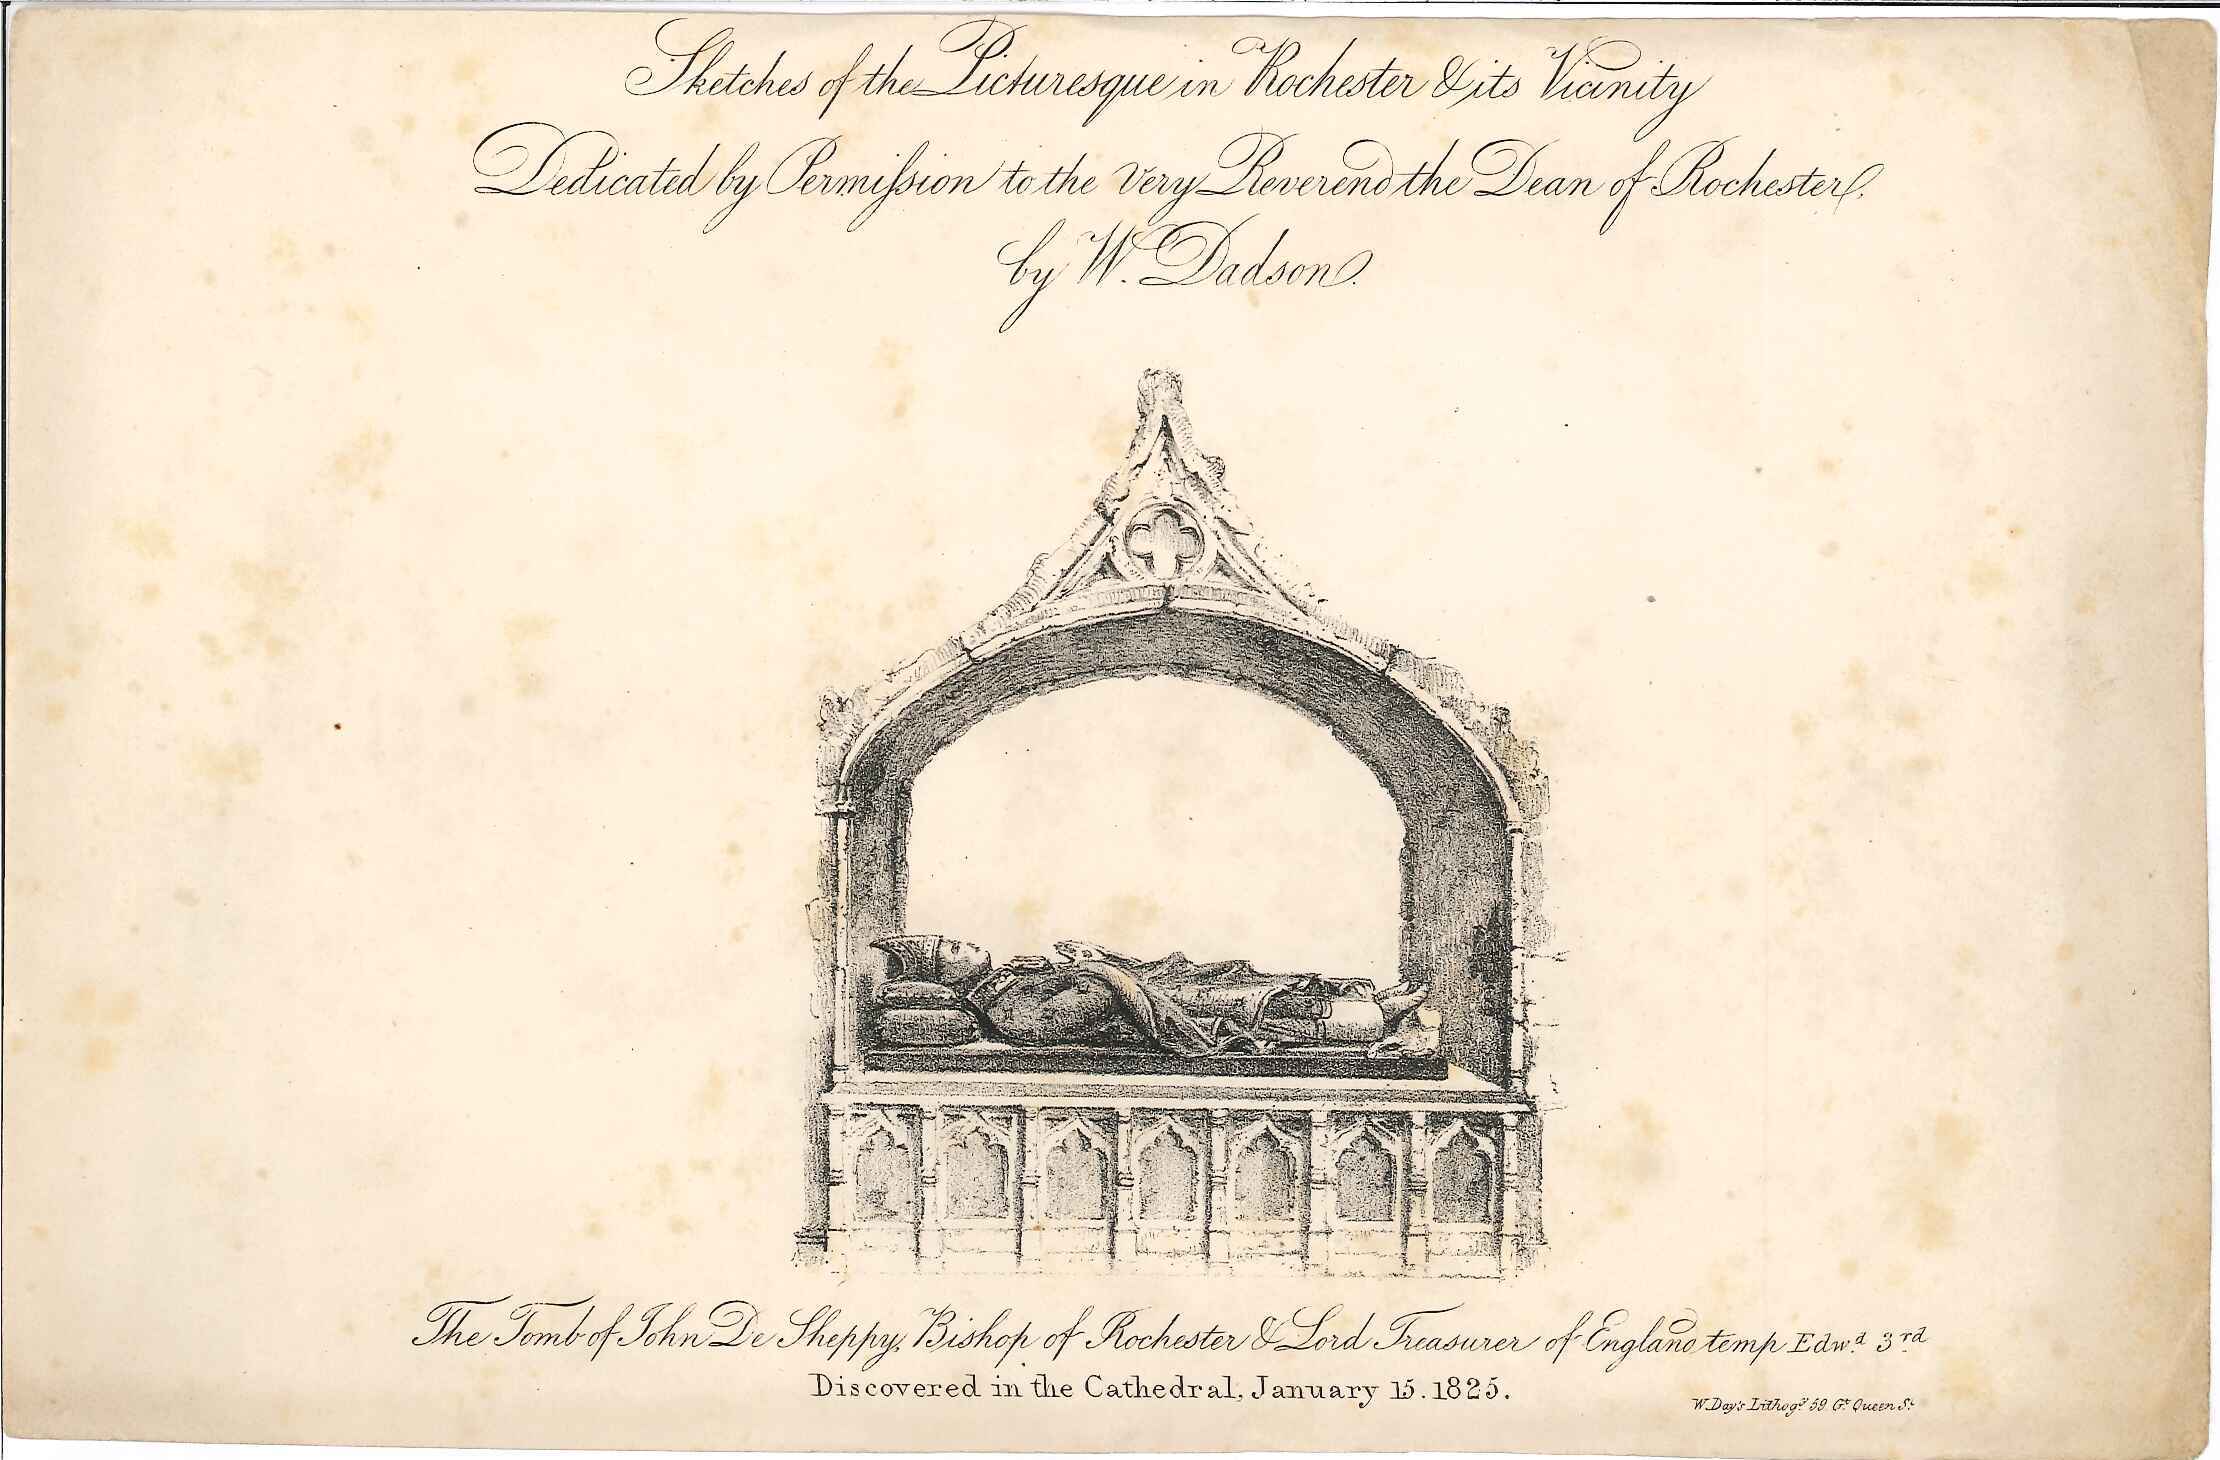 Sketches of the Picturesque in Rochester & its Vicinity
Dedicated by Permiſsion to the Very Reverend the Dean of Rochester.
by W. Dadson.
The Tomb of John De Sheppy, Bishop of Rochester & Lord Treasurer of England temp Edwd. 3rd
Discovered in the Cathedral, January 15. 1825.
W. Day's Lithogy. 59. Gt. Queen St.